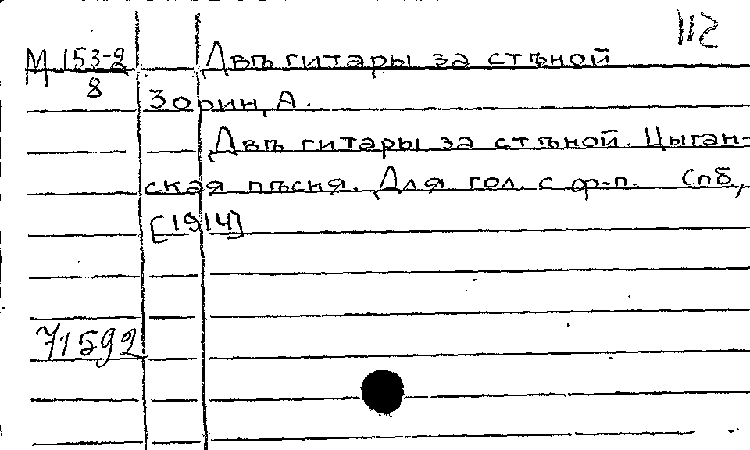 112
М 153-2
8
Двѣ гитары за стѣной
Зорин, А.
Двѣ гитары за стѣной. Цыган-
ская пѣсня. Для гол. с ф-п. Спб,
[1914]
71592